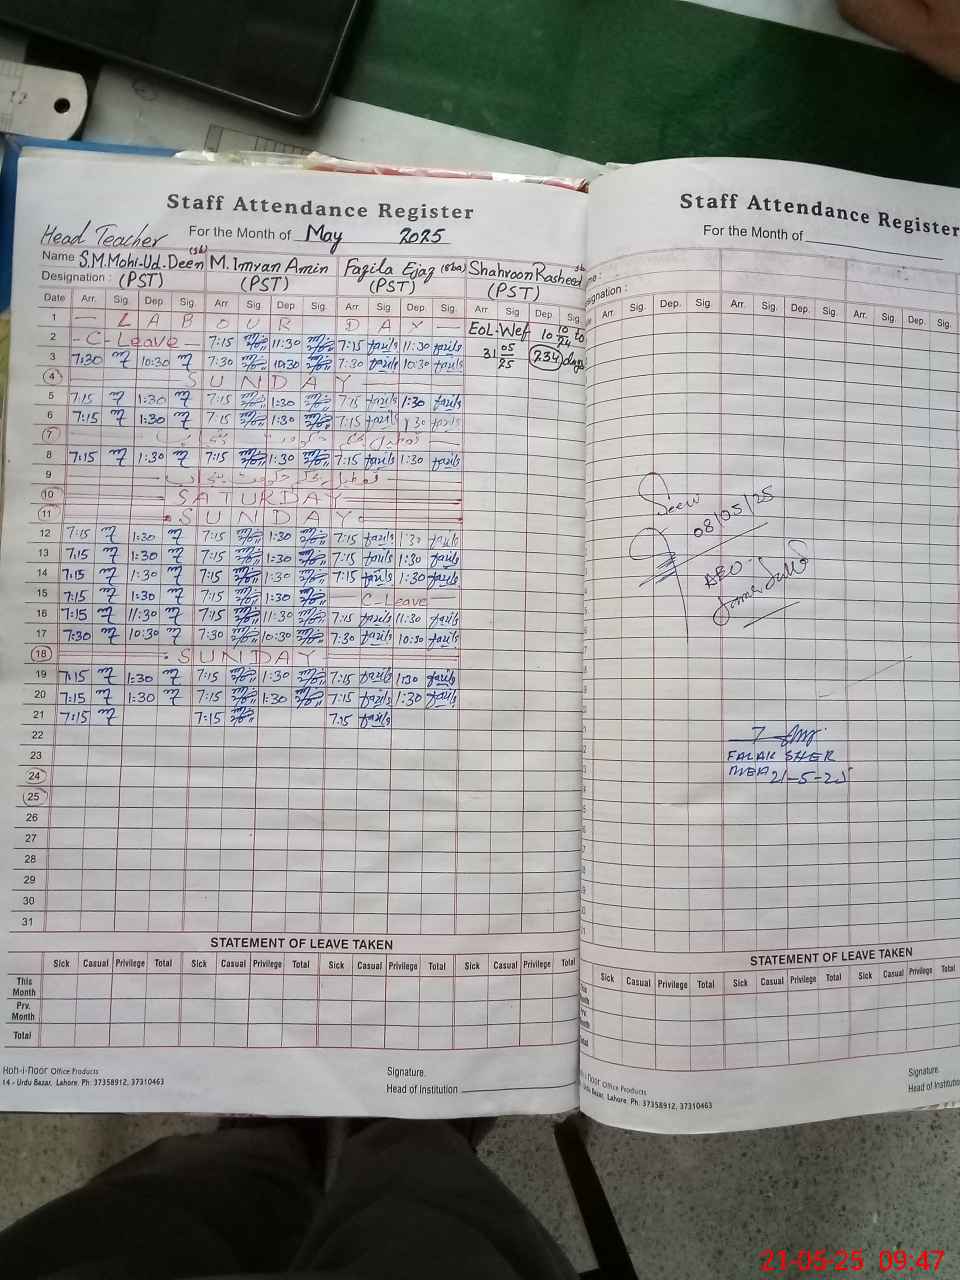 Staff Attendance Register
Head Teacher For the Month of May 2025
Name S.M.Mohi-Ud-Deen M. Imran Amin Fazila Ejaz Shahroon Rasheed
Designation : (PST) (PST) (PST) (PST)
Date Arr. Sig. Dep. Sig. Arr Sig. Dep. Sig. Arr Sig. Dep. Sig. Arr Sig Dep. Sig.
1 — LABOUR DAY —
EOL. Wef 10 10/24 to
2 - C-Leave - 7:15 11:30 7:15 11:30
31 05/25 (234) days
3 7:30 10:30 7:30 10:30 7:30 10:30
4 SUNDAY
5 7:15 1:30 7:15 1:30 7:15 1:30
6 7:15 1:30 7:15 1:30 7:15 1:30
7
8 7:15 1:30 7:15 1:30 7:15 1:30
9
10 SATURDAY
11 SUNDAY
12 7:15 1:30 7:15 1:30 7:15 1:30
13 7:15 1:30 7:15 1:30 7:15 1:30
14 7:15 1:30 7:15 1:30 7:15 1:30
15 7:15 1:30 7:15 1:30 — C-Leave —
16 7:15 11:30 7:15 11:30 7:15 11:30
17 7:30 10:30 7:30 10:30 7:30 10:30
18 SUNDAY
19 7:15 1:30 7:15 1:30 7:15 1:30
20 7:15 1:30 7:15 1:30 7:15 1:30
21 7:15 7:15 7:15
22
23
24
25
26
27
28
29
30
31
STATEMENT OF LEAVE TAKEN
Sick Casual Privilege Total Sick Casual Privilege Total Sick Casual Privilege Total Sick Casual Privilege Total
This Month
Prv. Month
Total
Koh-i-noor Office Products
14 - Urdu Bazar, Lahore. Ph: 37358912, 37310463
Signature.
Head of Institution
Staff Attendance Register
For the Month of
Arr. Sig. Dep. Sig. Arr. Sig. Dep. Sig. Arr. Sig. Dep.
Seen
08/05/25
AEO
FALAK SHER
MEA 21-5-25
STATEMENT OF LEAVE TAKEN
Sick Casual Privilege Total Sick Casual Privilege Total Sick Casual Privilege Total
Office Products
Bazar, Lahore. Ph: 37358912, 37310463
Signature.
Head of Institution
21-05-25 09:47